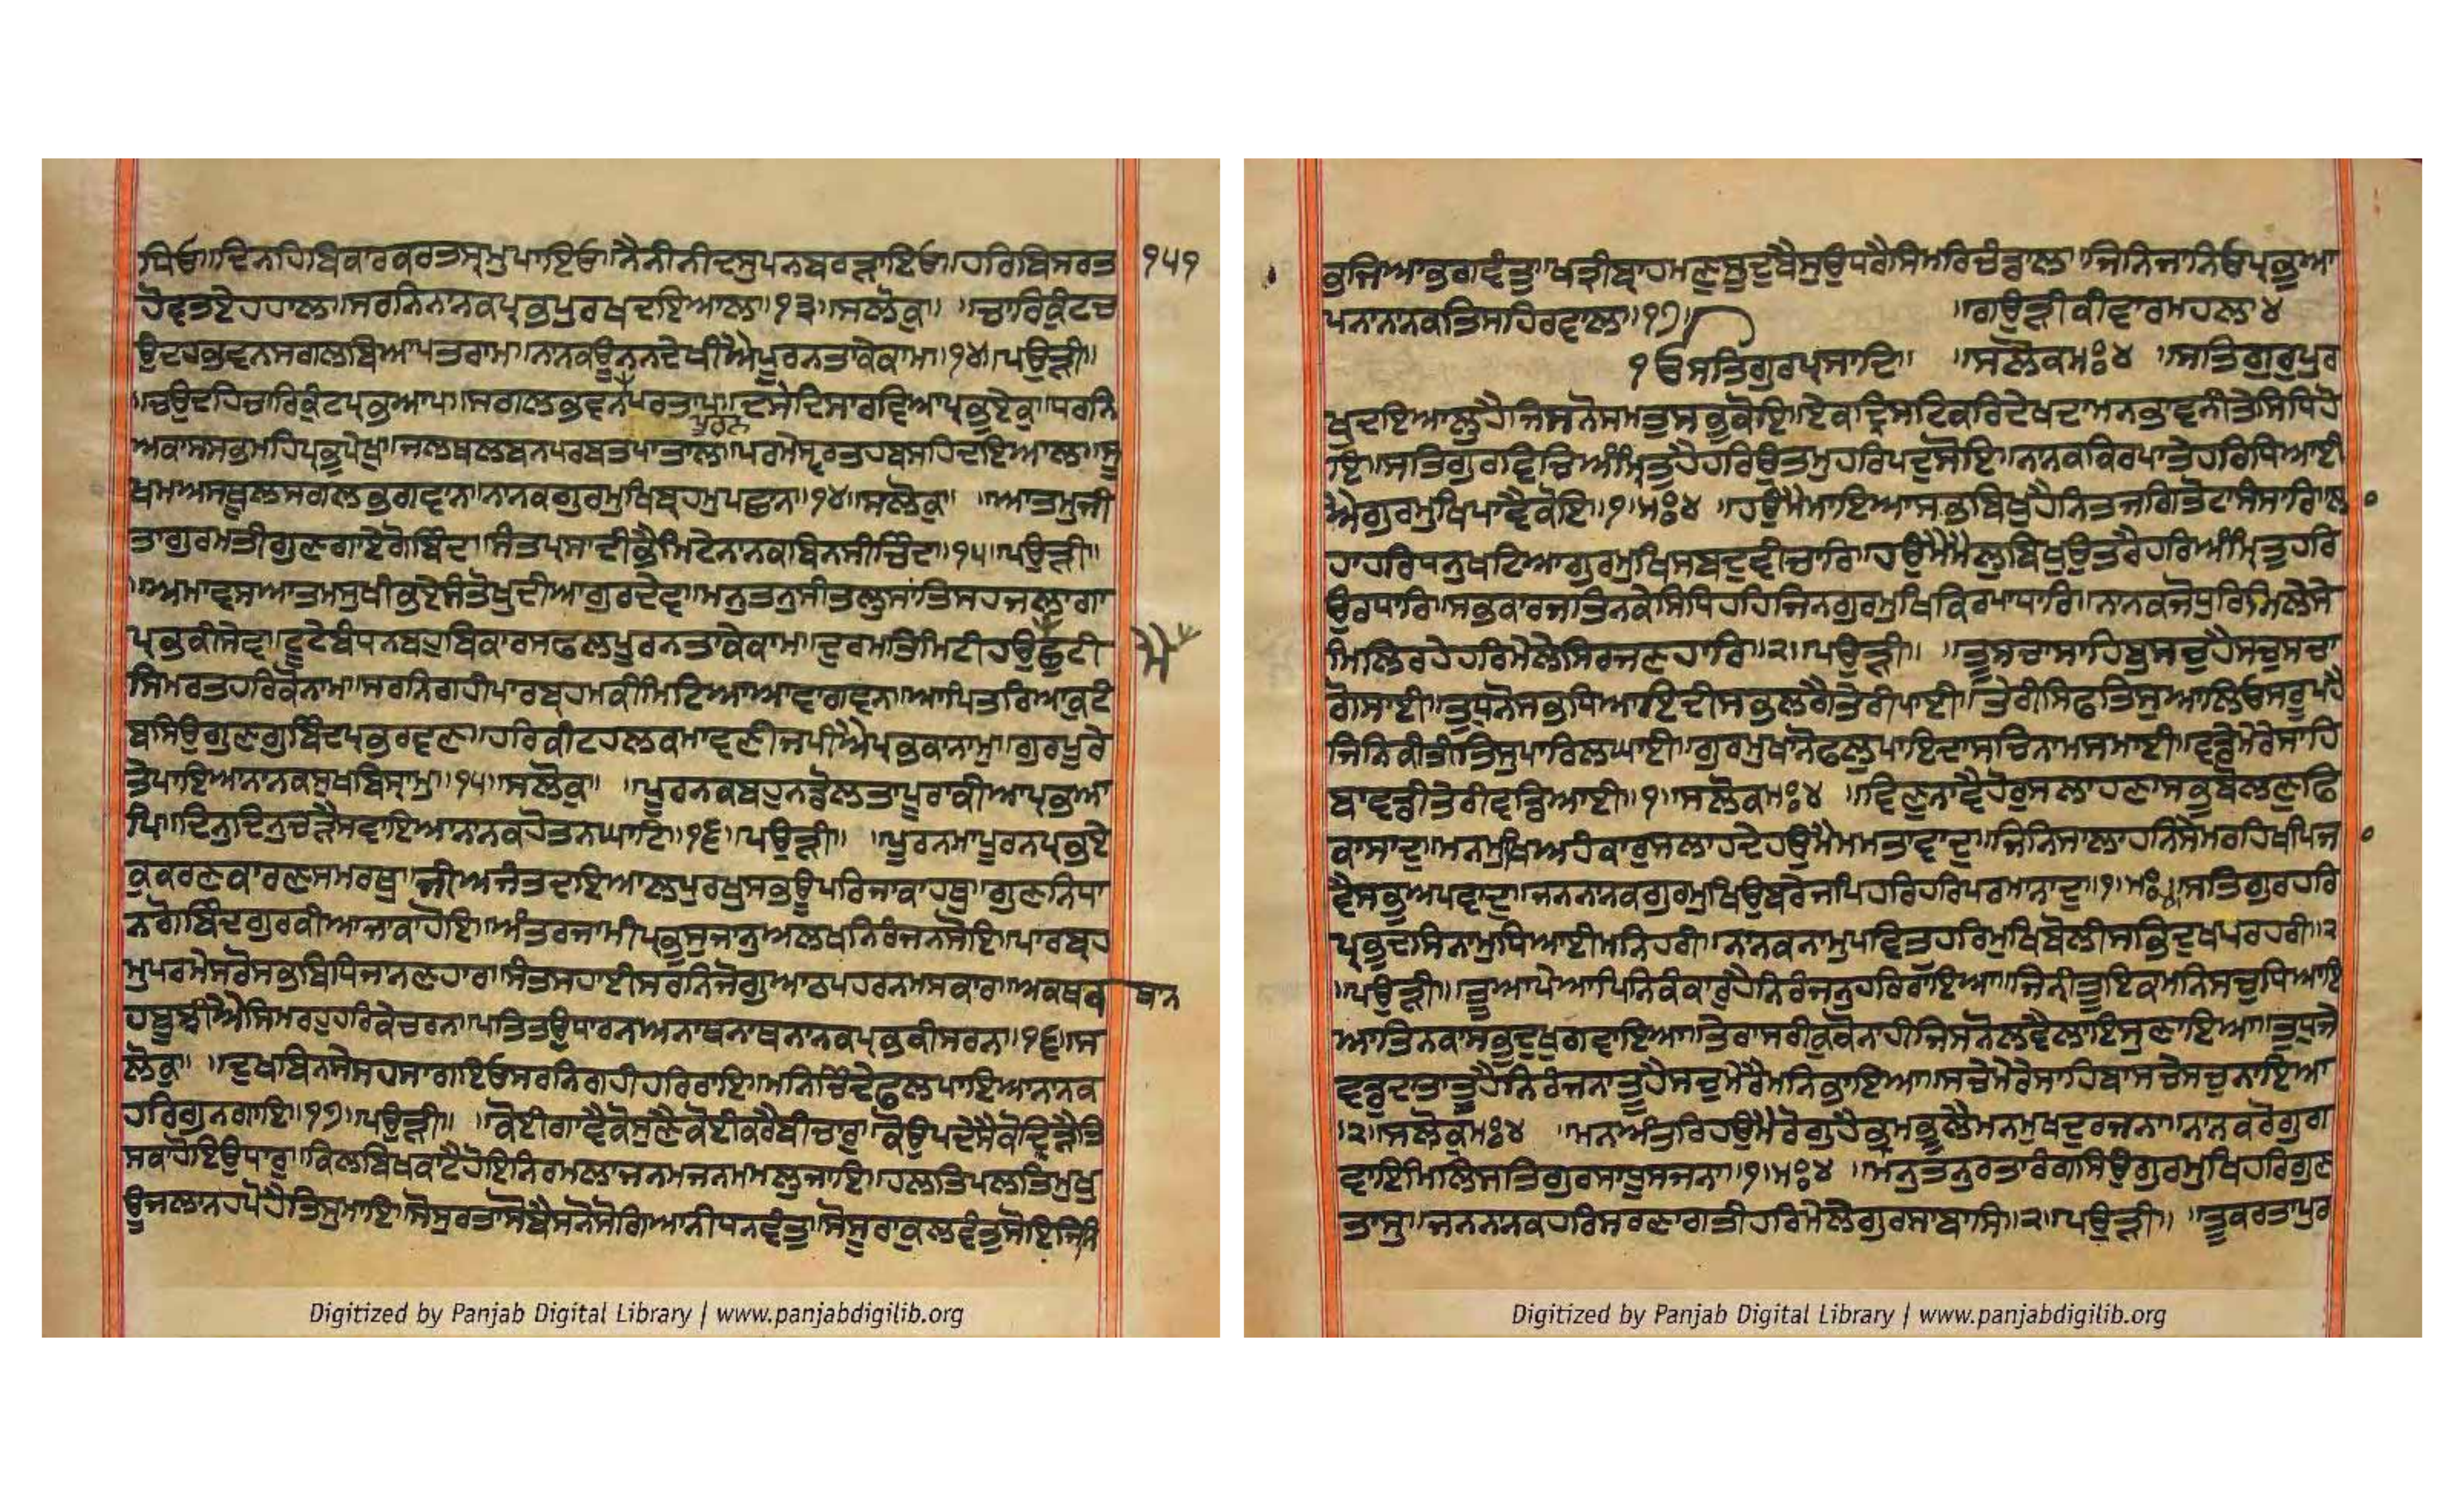 ਧਿਓ॥ਦਿਨਹਿਬਿਕਾਰਕਰਤਸ੍ਰਮੁਪਾਇਓ॥ਨੈਨੀਨੀਦਸੁਪਨਬਰੜਾਇਓ॥ਹਰਿਬਿਸਰਤ ੧੫੧
ਹੋਵਤਏਹਹਾਲ॥ਸਰਨਿਨਾਨਕਪ੍ਰਭਪੁਰਖਦਇਆਲ॥੧੩॥ਸਲੋਕੁ॥ ॥ਚਾਰਿਕੁੰਟਚ
ਉਦਹਭਵਨਸਗਲਬਿਆਪਤਰਾਮ॥ਨਾਨਕਊਨਨਦੇਖੀਐਪੂਰਨਤਾਕੇਕਾਮ॥੧੪॥ਪਉੜੀ॥
॥ਚਉਦਹਿਚਾਰਿਕੁੰਟਪ੍ਰਭਆਪ॥ਸਗਲਭਵਨਪਰਤਾਪ॥ਦਸੇਦਿਸਾਰਵਿਆਪ੍ਰਭੁਏਕੁ॥ਧਰਨਿ
ਪੂਰਨ
ਅਕਾਸਸਭਮਹਿਪ੍ਰਭਪੇਖੁ॥ਜਲਥਲਬਨਪਰਬਤਪਾਤਾਲ॥ਪਰਮੇਸ੍ਵਰਤਹਬਸਹਿਦਇਆਲ॥ਸੂ
ਖਮਅਸਥੂਲਸਗਲਭਗਵਾਨ॥ਨਾਨਕਗੁਰਮੁਖਿਬ੍ਰਹਮੁਪਛਾਨ॥੧੪॥ਸਲੋਕੁ॥ ॥ਆਤਮੁਜੀ
ਤਾਗੁਰਮਤੀਗੁਣਗਾਏਗੋਬਿੰਦ॥ਸੰਤਪ੍ਰਸਾਦੀਭੈਮਿਟੇਨਾਨਕਬਿਨਸੀਚਿੰਦ॥੧੫॥ਪਉੜੀ॥
॥ਅਮਾਵਸਆਤਮਸੁਖੀਭਏਸੰਤੋਖੁਦੀਆਗੁਰਦੇਵ॥ਮਨੁਤਨੁਸੀਤਲੁਸਾਂਤਿਸਹਜਲਾਗਾ
ਪ੍ਰਭਕੀਸੇਵ॥ਟੂਟੇਬੰਧਨਬਹੁਬਿਕਾਰਸਫਲਪੂਰਨਤਾਕੇਕਾਮ॥ਦੁਰਮਤਿਮਿਟੀਹਉਛੁਟੀ ਮੈ
ਸਿਮਰਤਹਰਿਕੋਨਾਮ॥ਸਰਨਿਗਹੀਪਾਰਬ੍ਰਹਮਕੀਮਿਟਿਆਆਵਾਗਵਨ॥ਆਪਿਤਰਿਆਕੁਟੰ
ਬਸਿਉਗੁਣਗੁਬਿੰਦਪ੍ਰਭਰਵਣ॥ਹਰਿਕੀਟਹਲਕਮਾਵਣੀਜਪੀਐਪ੍ਰਭਕਾਨਾਮੁ॥ਗੁਰਪੂਰੇ
ਤੇਪਾਇਆਨਾਨਕਸੁਖਬਿਸ੍ਰਾਮੁ॥੧੫॥ਸਲੋਕੁ॥ ॥ਪੂਰਨਕਬਹੁਨਡੋਲਤਾਪੂਰਾਕੀਆਪ੍ਰਭਆ
ਪਿ॥ਦਿਨੁਦਿਨੁਚੜੈਸਵਾਇਆਨਾਨਕਹੋਤਨਘਾਟਿ॥੧੬॥ਪਉੜੀ॥ ॥ਪੂਰਨਮਾਪੂਰਨਪ੍ਰਭਏ
ਕੁਕਰਣਕਾਰਣਸਮਰਥੁ॥ਜੀਅਜੰਤਦਇਆਲਪੁਰਖੁਸਭਊਪਰਿਜਾਕਾਹਥੁ॥ਗੁਣਨਿਧਾ
ਨਗੋਬਿੰਦਗੁਰਕੀਆਜਾਕਾਹੋਇ॥ਅੰਤਰਜਾਮੀਪ੍ਰਭੁਸੁਜਾਨੁਅਲਖਨਿਰੰਜਨਸੋਇ॥ਪਾਰਬ੍ਰਹ
ਮੁਪਰਮੇਸਰੋਸਭਬਿਧਿਜਾਨਣਹਾਰ॥ਸੰਤਸਹਾਈਸਰਨਿਜੋਗੁਆਠਪਹਰਨਮਸਕਾਰ॥ਅਕਥਕ ਥਾਨ
ਹਬੂਝੀਐਸਿਮਰਹੁਹਰਿਕੇਚਰਨ॥ਪਤਿਤਉਧਾਰਨਅਨਾਥਨਾਥਨਾਨਕਪ੍ਰਭਕੀਸਰਨ॥੧੬॥ਸ
ਲੋਕੁ॥ ॥ਦੁਖਬਿਨਸੇਸਹਸਾਗਇਓਸਰਨਿਗਹੀਹਰਿਰਾਇ॥ਮਨਿਚਿੰਦੇਫਲਪਾਇਆਨਾਨਕ
ਹਰਿਗੁਨਗਾਇ॥੧੭॥ਪਉੜੀ॥ ॥ਕੋਈਗਾਵੈਕੋਸੁਣੈਕੋਈਕਰੈਬੀਚਾਰੁ॥ਕੋਉਪਦੇਸੈਕੋਦ੍ਰਿੜੈਤਿ
ਸਕਾਹੋਇਉਧਾਰੁ॥ਕਿਲਬਿਖਕਾਟੈਹੋਇਨਿਰਮਲਾਜਨਮਜਨਮਮਲੁਜਾਇ॥ਹਲਤਿਪਲਤਿਮੁਖੁ
ਊਜਲਾਨਹਪੋਹੈਤਿਸੁਮਾਇ॥ਸੋਸੁਰਤਾਸੋਬੈਸਨੋਸੋਗਿਆਨੀਧਨਵੰਤੁ॥ਸੋਸੂਰਾਕੁਲਵੰਤੁਸੋਇਜਿਨਿ
ਭਜਿਆਭਗਵੰਤੁ॥ਖਤ੍ਰੀਬ੍ਰਾਹਮਣੁਸੂਦੁਬੈਸੁਉਧਰੈਸਿਮਰਿਚੰਡਾਲ॥ਜਿਨਿਜਾਨਿਓਪ੍ਰਭੁਆ
ਪਨਾਨਾਨਕਤਿਸਹਿਰਵਾਲ॥੧੭॥ ॥ਗਉੜੀਕੀਵਾਰਮਹਲਾ੪
੧ਓਸਤਿਗੁਰਪ੍ਰਸਾਦਿ॥ ॥ਸਲੋਕਮਃ੪ ॥ਸਤਿਗੁਰੁਪੁਰ
ਖੁਦਇਆਲੁਹੈਜਿਸਨੋਸਮਤੁਸਭੁਕੋਇ॥ਏਕਦ੍ਰਿਸਟਿਕਰਿਦੇਖਦਾਮਨਭਾਵਨੀਤੇਸਿਧਿਹੋ
ਇ॥ਸਤਿਗੁਰਵਿਚਿਅੰਮ੍ਰਿਤੁਹੈਹਰਿਉਤਮੁਹਰਿਪਦੁਸੋਇ॥ਨਾਨਕਕਿਰਪਾਤੇਹਰਿਧਿਆਈ
ਐਗੁਰਮੁਖਿਪਾਵੈਕੋਇ॥੧॥ਮਃ੪ ॥ਹਉਮੈਮਾਇਆਸਭਬਿਖੁਹੈਨਿਤਜਗਿਤੋਟਾਸੰਸਾਰਿ॥ਲਾ
ਹਾਹਰਿਧਨੁਖਟਿਆਗੁਰਮੁਖਿਸਬਦੁਵੀਚਾਰਿ॥ਹਉਮੈਮੈਲੁਬਿਖੁਉਤਰੈਹਰਿਅੰਮ੍ਰਿਤੁਹਰਿ
ਉਰਧਾਰਿ॥ਸਭਕਾਰਜਤਿਨਕੇਸਿਧਿਹਹਿਜਿਨਗੁਰਮੁਖਿਕਿਰਪਾਧਾਰਿ॥ਨਾਨਕਜੋਧੁਰਿਮਿਲੇਸੇ
ਮਿਲਿਰਹੇਹਰਿਮੇਲੇਸਿਰਜਣਹਾਰਿ॥੨॥ਪਉੜੀ॥ ॥ਤੂਸਚਾਸਾਹਿਬੁਸਚੁਹੈਸਚੁਸਚਾ
ਗੋਸਾਈ॥ਤੁਧੁਨੋਸਭਧਿਆਇਦੀਸਭਲਗੈਤੇਰੀਪਾਈ॥ਤੇਰੀਸਿਫਤਿਸੁਆਲਿਓਸਰੂਪਹੈ
ਜਿਨਿਕੀਤੀਤਿਸੁਪਾਰਿਲਘਾਈ॥ਗੁਰਮੁਖਾਨੋਫਲੁਪਾਇਦਾਸਚਿਨਾਮਸਮਾਈ॥ਵਡੇਮੇਰੇਸਾਹਿ
ਬਾਵਡੀਤੇਰੀਵਡਿਆਈ॥੧॥ਸਲੋਕਮਃ੪ ॥ਵਿਣੁਨਾਵੈਹੋਰੁਸਲਾਹਣਾਸਭੁਬੋਲਣੁਫਿ
ਕਾਸਾਦੁ॥ਮਨਮੁਖਿਅਹੰਕਾਰੁਸਲਾਹਦੇਹਉਮੈਮਮਤਾਵਾਦੁ॥ਜਿਨਿਸਾਲਾਹਨਿਸੇਮਰਹਿਖਪਿਜਾ
ਵੈਸਭੁਅਪਵਾਦੁ॥ਜਨਨਾਨਕਗੁਰਮੁਖਿਉਬਰੇਜਪਿਹਰਿਹਰਿਪਰਮਾਨਾਦੁ॥੧॥ਮਃ੪॥ਸਤਿਗੁਰਹਰਿ
ਪ੍ਰਭੁਦਸਿਨਾਮੁਧਿਆਈਮਨਿਹਰੀ॥ਨਾਨਕਨਾਮੁਪਵਿਤੁਹਰਿਮੁਖਿਬੋਲੀਸਭਿਦੁਖਪਰਹਰੀ॥੨
॥ਪਉੜੀ॥ ॥ਤੂਆਪੇਆਪਿਨਿਰੰਕਾਰੁਹੈਨਿਰੰਜਨੁਹਰਿਰਾਇਆ॥ਜਿਨੀਤੂਇਕਮਨਿਸਚੁਧਿਆਇ
ਆਤਿਨਕਾਸਭੁਦੁਖੁਗਵਾਇਆ॥ਤੇਰਾਸਰੀਕੁਕੋਨਾਹੀਜਿਸਨੋਲਵੈਲਾਇਸੁਣਾਇਆ॥ਤੁਧੁਜੇ
ਵਡੁਦਾਤਾਤੂਹੈਨਿਰੰਜਨਾਤੂਹੈਸਚੁਮੇਰੈਮਨਿਭਾਇਆ॥ਸਚੇਮੇਰੇਸਾਹਿਬਾਸਚੇਸਚੁਨਾਇਆ
॥੨॥ਸਲੋਕਮਃ੪ ॥ਮਨਅੰਤਰਿਹਉਮੈਰੋਗੁਹੈਭ੍ਰਮਭੂਲੇਮਨਮੁਖਦੁਰਜਨਾ॥ਨਾਨਕਰੋਗੁਗ
ਵਾਇਮਿਲਿਸਤਿਗੁਰਸਾਧੂਸਜਨਾ॥੧॥ਮਃ੪ ॥ਮਨੁਤਨੁਰਤਾਰੰਗਸਿਉਗੁਰਮੁਖਿਹਰਿਗੁਣ
ਤਾਸੁ॥ਜਨਨਾਨਕਹਰਿਸਰਣਾਗਤੀਹਰਿਮੇਲੇਗੁਰਸਾਬਾਸਿ॥੨॥ਪਉੜੀ॥ ॥ਤੂਕਰਤਾਪੁਰ
Digitized by Panjab Digital Library | www.panjabdigilib.org
Digitized by Panjab Digital Library | www.panjabdigilib.org